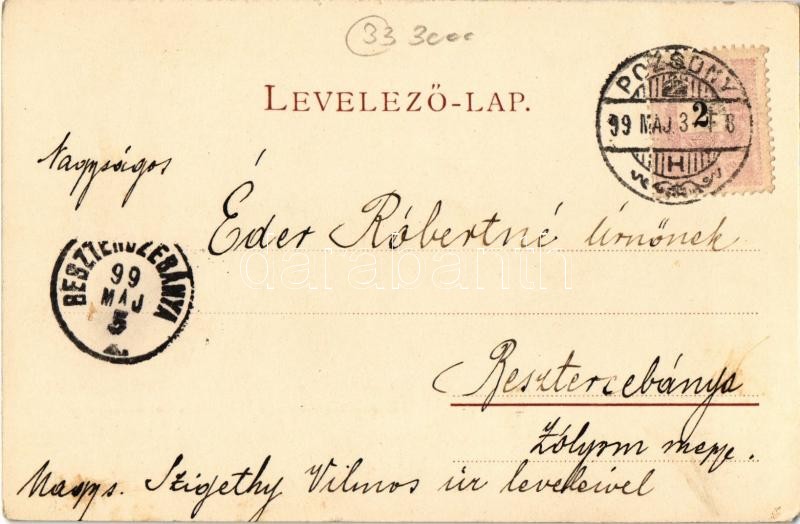 33 3000
LEVELEZŐ-LAP.
POZSONY
99 MÁJ 3
F 8
H
2
Nagyságos
Éder Róbertné úrnőnek
BESZTERCZEBÁNYA
99
MÁJ
5
darabanth
Besztercebánya
Zólyom megye.
Nagys. Szigethy Vilmos úr leveleivel